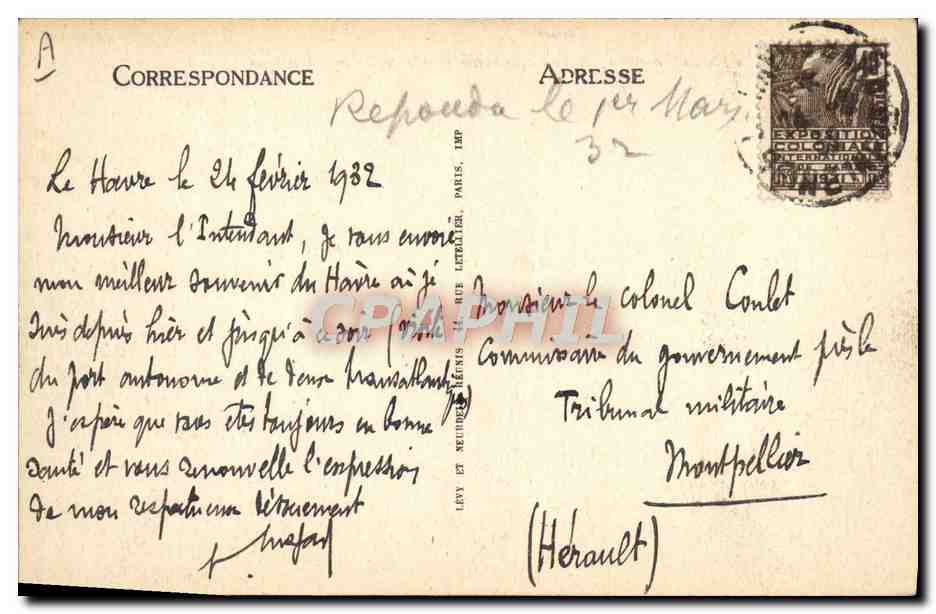 A
CORRESPONDANCE
ADRESSE
Repondu le 1er Mars
32
EXPOSITION
COLONIALE
INTERNATIONALE
Le Havre le 24 février 1932
Monsieur l'Intendant, je vous envoie
mon meilleur souvenir du Havre où je
suis depuis hier et jusqu'à ce soir (visite
du port autonome et de deux transatlantiques)
J'espère que vous êtes toujours en bonne
santé et vous renouvelle l'expression
de mon respectueux dévouement
LÉVY ET NEURDEIN RÉUNIS 44, RUE LETELLIER, PARIS, IMP
Monsieur le colonel Coulet
Commissaire du gouvernement près le
Tribunal militaire
Montpellier
(Hérault)
CPAPHIL